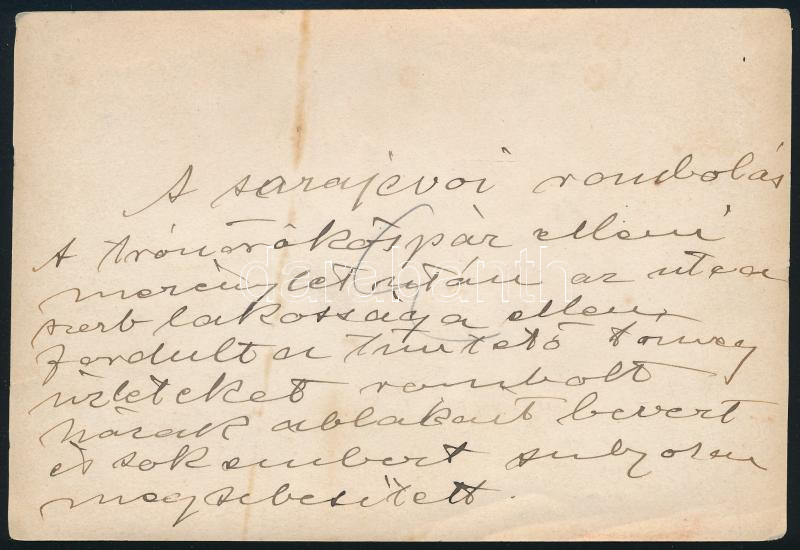 A sarajevoi rombolás
A trónörököspár elleni
merénylet után az utca
szerb lakossága ellen
fordult a tüntető tömeg
üzleteket rombolt
házak ablakait bevert
és sok embert sulyosan
megsebesitett.
darabanth